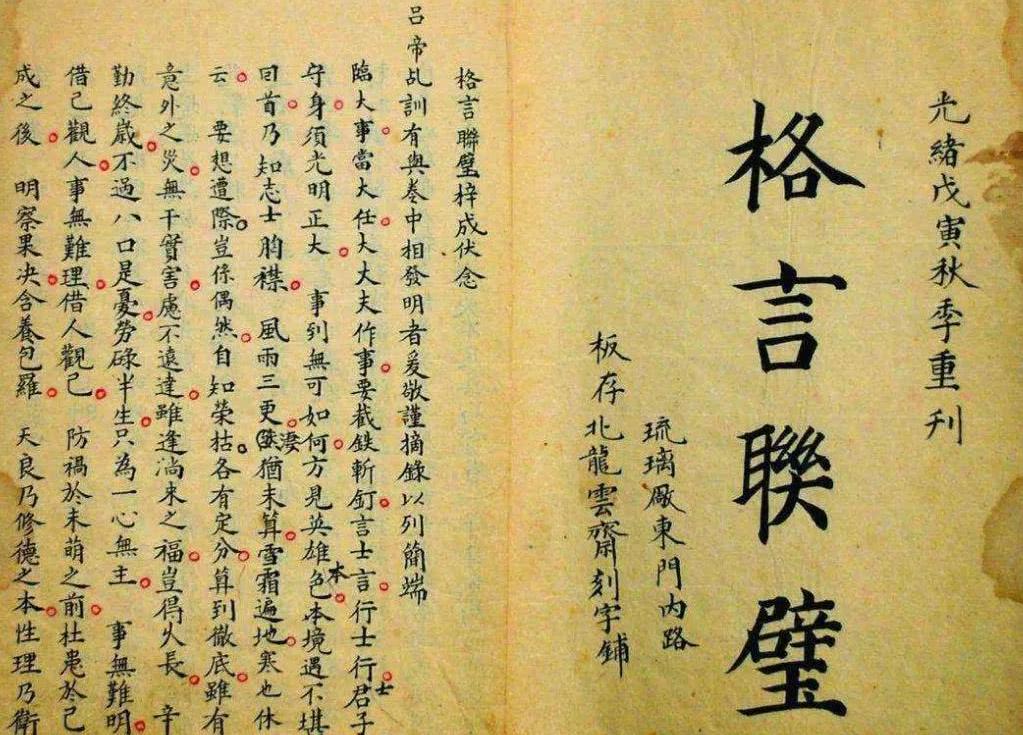 光緒戊寅秋季重刊
格言聯璧
琉璃厰東門内路
板存北龍雲齋刻字鋪
格言聯璧梓成伏念
呂帝乩訓有與卷中相發明者爰敬謹摘錄以列簡端
臨大事當大任大大夫作事要截鉄斬釘言士言行士行君子士
守身須光明正大 事到無可如何方見英雄色本本境遇不堪
囬首乃知志士胸襟 風雨三更凄猶未算雪霜遍地寒也休
云 要想遭際豈係偶然自知榮枯各有定分算到徹底雖有
意外之災無干實害慮不遠達雖逢淌來之福豈得久長 辛
勤終歲不過八口是憂勞碌半生只為一心無主 事無難明
借己觀人事無難理借人觀己 防禍於未萌之前杜患於已
成之後 明察果决含養包羅 天良乃修德之本性理乃衛